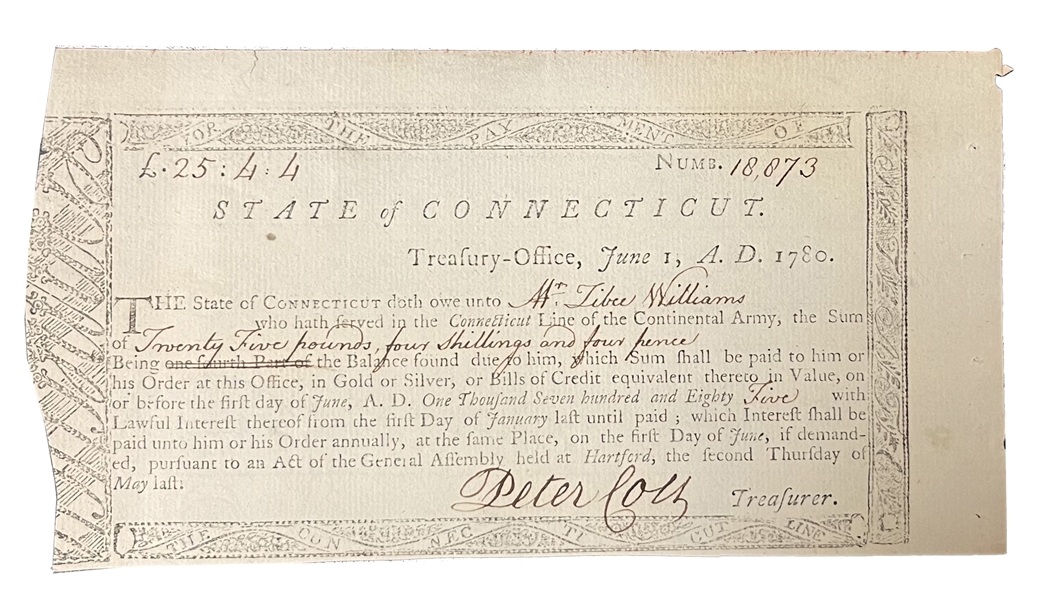 FOR THE PAYMENT OF
£.25:4:4 NUMB. 18,873
STATE of CONNECTICUT.
Treaſury-Office, June 1, A. D. 1780.
THE State of CONNECTICUT doth owe unto Mr. Tibee Williams
who hath ſerved in the Connecticut Line of the Continental Army, the Sum
of Twenty Five pounds, four shillings and four pence
Being one fourth Part of the Balance found due to him, which Sum ſhall be paid to him or
his Order at this Office, in Gold or Silver, or Bills of Credit equivalent thereto in Value, on
or before the firſt day of June, A. D. One Thouſand Seven hundred and Eighty Five with
Lawful Intereſt thereof from the firſt Day of January laſt until paid ; which Intereſt ſhall be
paid unto him or his Order annually, at the ſame Place, on the firſt Day of June, if demand-
ed, purſuant to an Act of the General Aſſembly held at Hartford, the ſecond Thurſday of
May laſt:
Peter Colt Treaſurer.
THE CONNECTICUT LINE